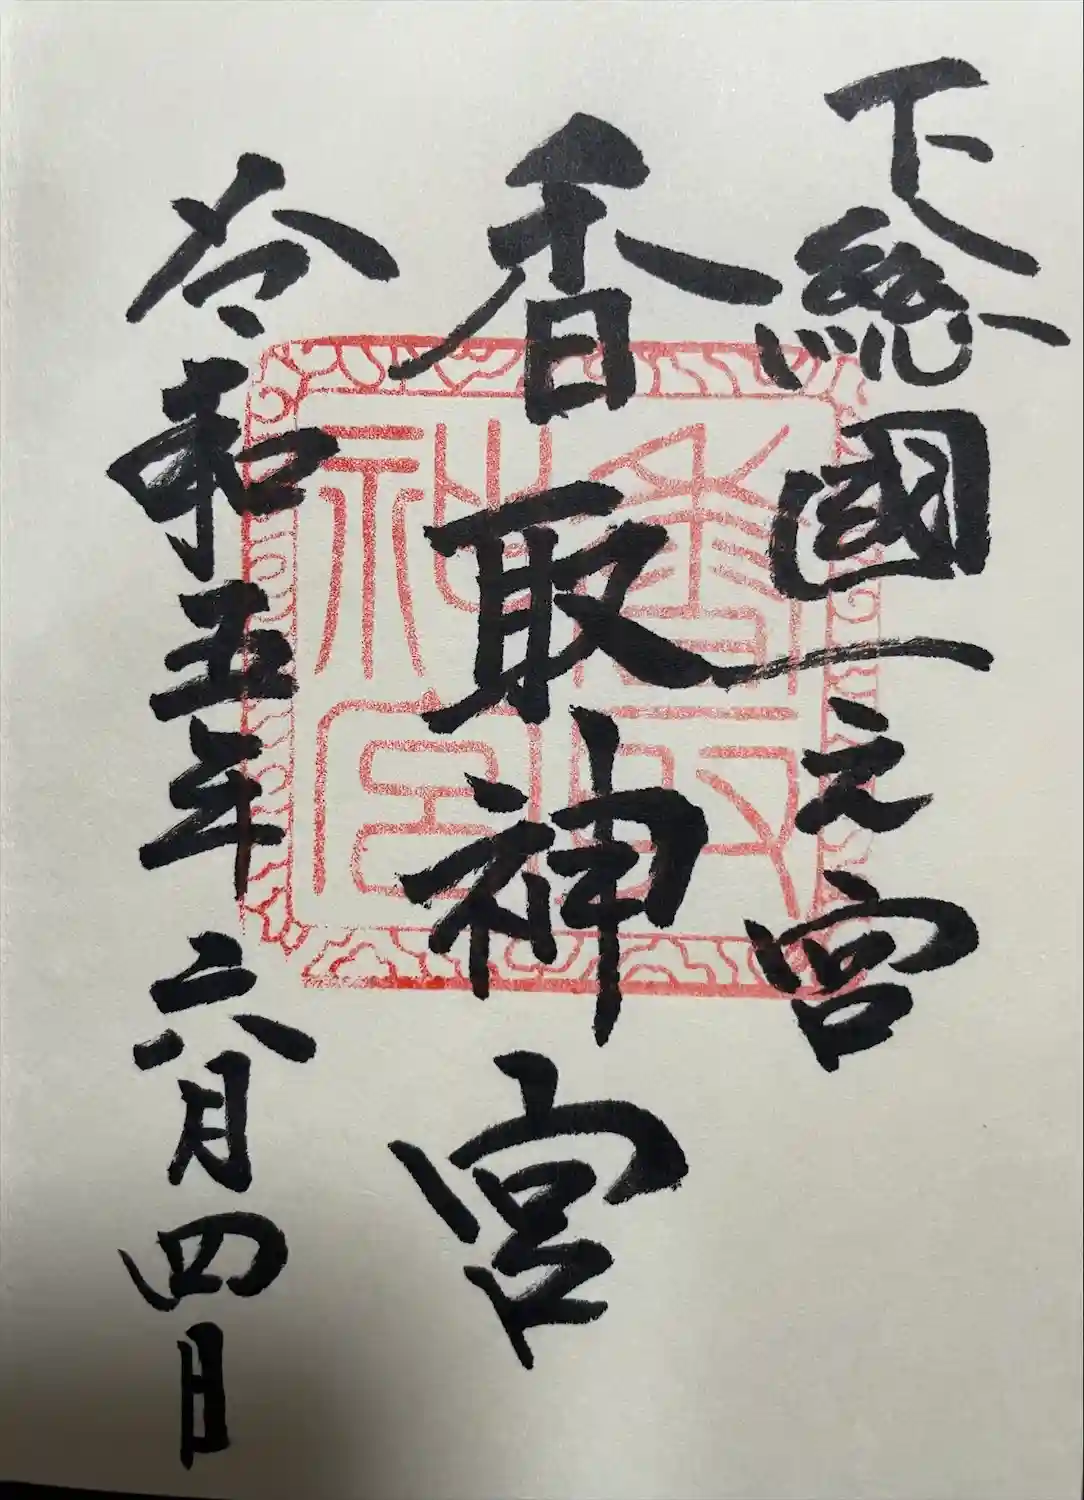 下總國一之宮
香取神宮
令和五年六月四日
香取神宮